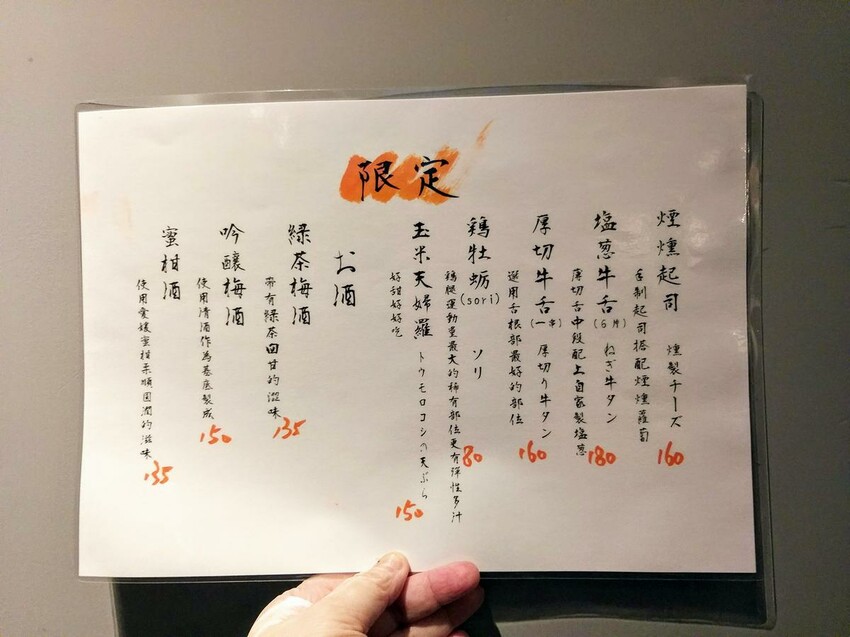 限定
煙燻起司 燻製チーズ
手制起司搭配煙燻蘿蔔
160
塩葱牛舌(6片) ねぎ牛タン
厚切舌中段配上自家製塩葱
180
厚切牛舌(一串) 厚切り牛タン
選用舌根部最好的部位
160
鶏牡蛎(sori) ソリ
鶏腿運動量最大的稀有部位更有弾性多汁
80
玉米天婦羅 トウモロコシの天ぷら
好甜好好吃
150
お酒
緑茶梅酒
帶有緑茶回甘的滋味
135
吟釀梅酒
使用清酒作為基底製成
150
蜜柑酒
使用愛媛蜜柑柔順圓潤的滋味
135